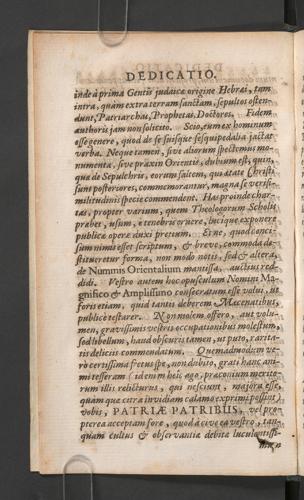 DEDICATIO.
inde à prima Gentis judaicæ origine Hebræi, tam
intra, quàm extra terram sanctam, sepultos osten-
dunt, Patriarchas, Prophetas, Doctores. Fidem
authoris jam non solicito. Scio, eum ex hominum
esse genere, quod de se suisque sesquipedalia jactat
verba. Neque tamen, sive aliorum spectemus mo-
numenta, sive praxin Orientis, dubium est, quin,
quæ de Sepulchris, eorum saltem, qui ætate Christi
sunt posteriores, commemorantur, magna se verisi-
militudinis specie commendent. Has proinde char-
tas, propter varium, quem Theologorum Scholis
præbet, usum, è tenebris eruere, lucique exponere
publicæ operæ duxi pretium. Et ne, quod conci-
sum nimis esset scriptum, & breve, commoda de-
stitueretur forma, non modo notis, sed & altera,
de Nummis Orientalium mantissa, auctius red-
didi. Vestro autem hoc opusculum Nomini Ma-
gnifico & Amplissimo consecratum esse volui, ut
foris etiam, quid tantis deberem Mecænatibus,
publicè testarer. Non molem offero, aut volu-
men, gravissimis vestris occupationibus molestum,
sed libellum, haud obscuris tamen, ut puto, rarita-
tis deliciis commendatum. Quemadmodum ve-
rò certissima fretus spe, non dubito, grati hanc ani-
mi tesseram idem in heic ago, præconium merito-
rum illis relicturus, qui nesciunt, majora esse,
quàm quæ citra invidiam calamo exprimi possint,
vobis, PATRIÆ PATRIBUS, vel pro-
pterea acceptam fore, quod à cive ea vestro, tan-
quàm cultus & observantiæ debitæ luculentissi-